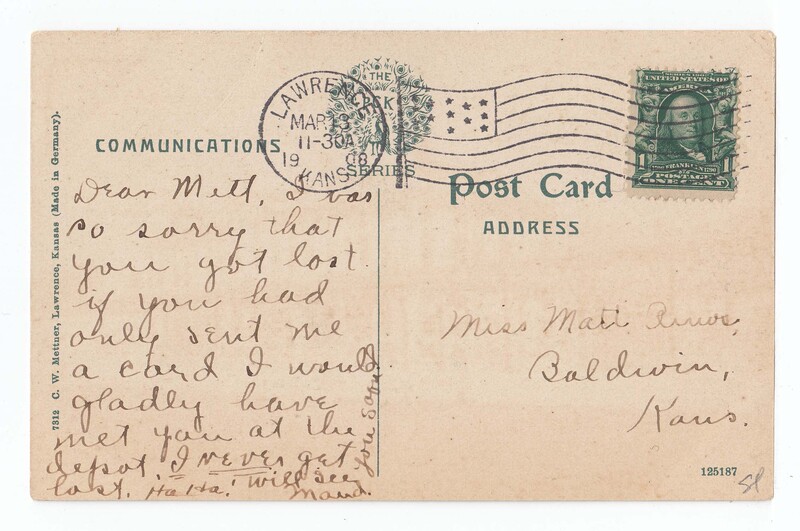 7312 C. W. Mettner, Lawrence, Kansas (Made in Germany).
COMMUNICATIONS
THE
SERIES
LAWRENCE
MAR 13
11-30A
1908
KANS.
SERIES 1902
UNITED STATES OF
AMERICA
FRANKLIN
1 1
POSTAGE
ONE CENT
Post Card
ADDRESS
Dear Mett, I was
so sorry that
you got lost
if you had
only sent me
a card I would
gladly have
met you at the
depot. I never get
lost. Ha Ha! Will see
you soon
Maud.
Miss Matt
Baldwin,
Kans.
125187